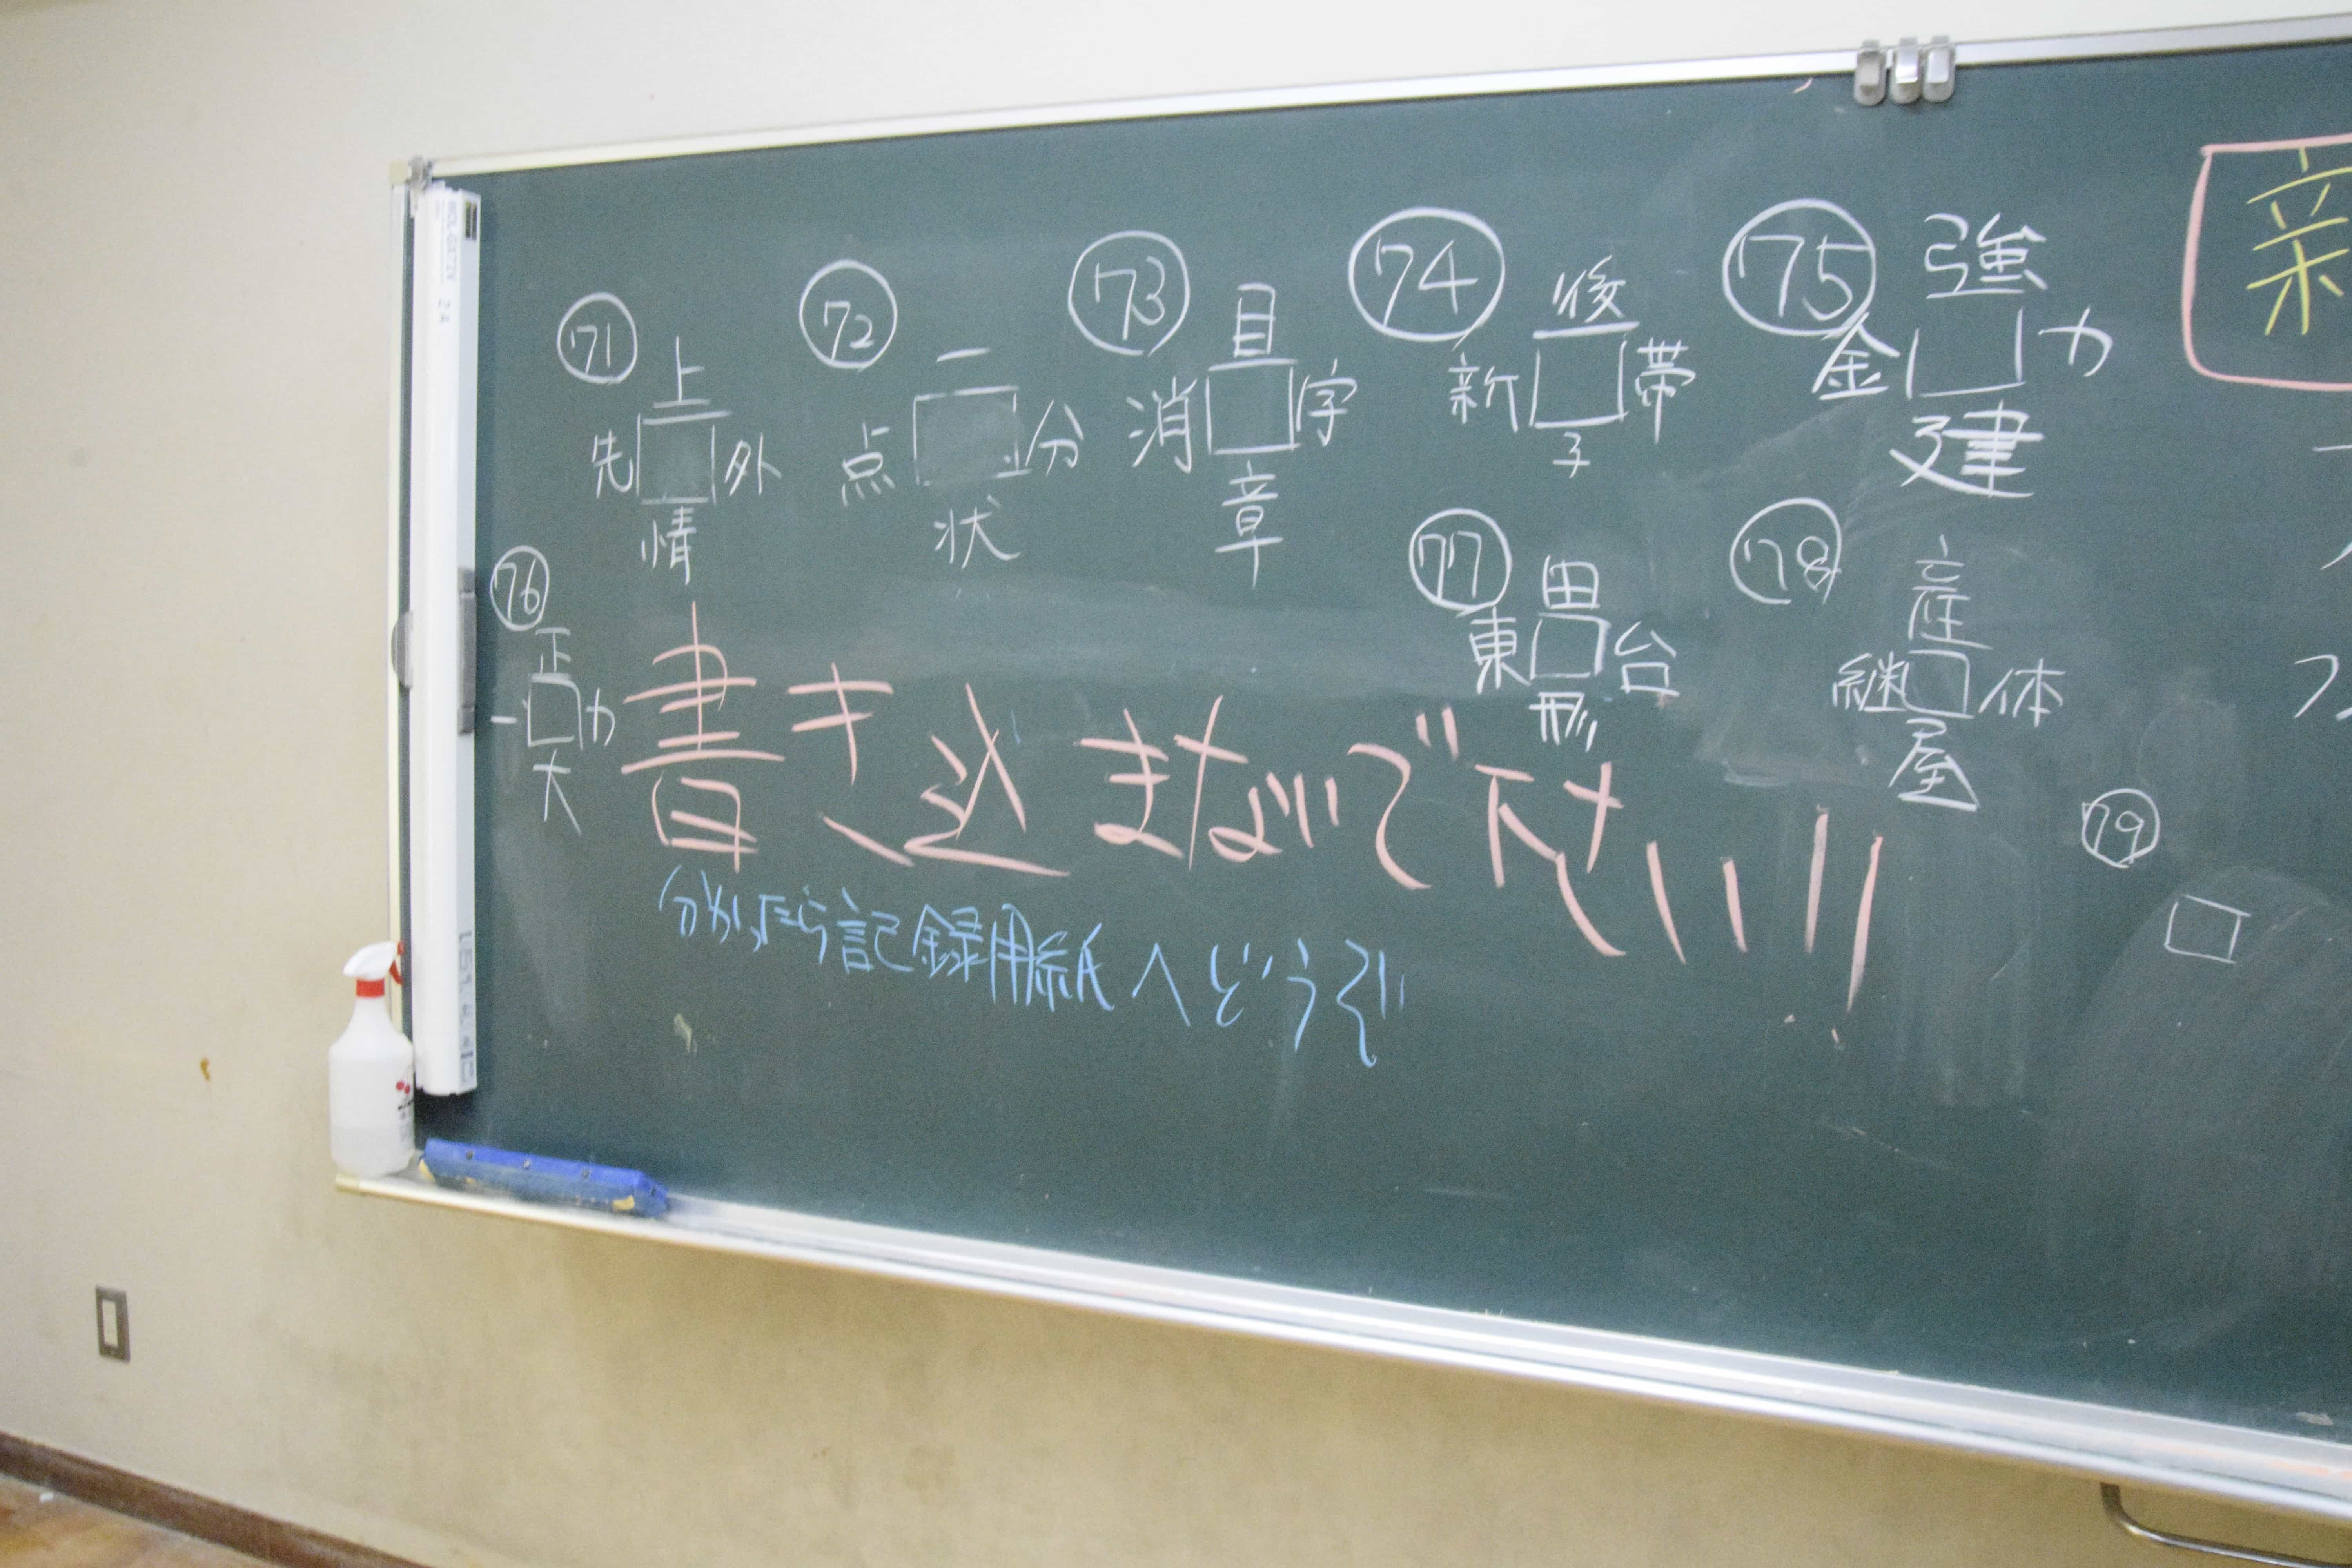 ㉛71 上
先 □ 外
情
72 二
点 □ 分
状
73 目
消 □ 字
章
74 後
新 □ 帯
子
75 強
金 □ 力
建
76 正
一 □ カ
大
77 田
東 □ 台
形
78 産
継 □ 体
屋
79
□
書き込まないで下さい!!
分かったら記録用紙へどうぞ